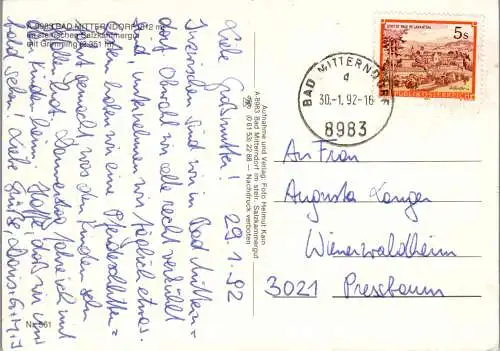 A-8983 BAD MITTERNDORF 812 m
im steirischen Salzkammergut
mit Grimming (2.351 m)
Liebe Großmutter! 29.1.92
Inzwischen sind wir in Bad Mittern=
dorf. Obwohl wir alle recht verkühlt
sind, unternehmen wir täglich etwas.
haben wir eine Pferdeschlitten=
fahrt gemacht, was den Kindern sehr
gefallen hat. Donnerstag fahre ich mit
den Kindern heim. Hoffe, daß wir uns
bald sehn! Liebe Grüße, Doris
Nr. 561
Aufnahme und Verlag: Foto Helmut Kain
A-8983 Bad Mitterndorf im steir. Salzkammergut
(0 61 53) 22 88 — Nachdruck verboten
5s
REPUBLIK ÖSTERREICH
BAD MITTERNDORF
d
30.-1.92-16
8983
An Frau
Augusta Langer
Wienerwaldheim
3021 Pressbaum